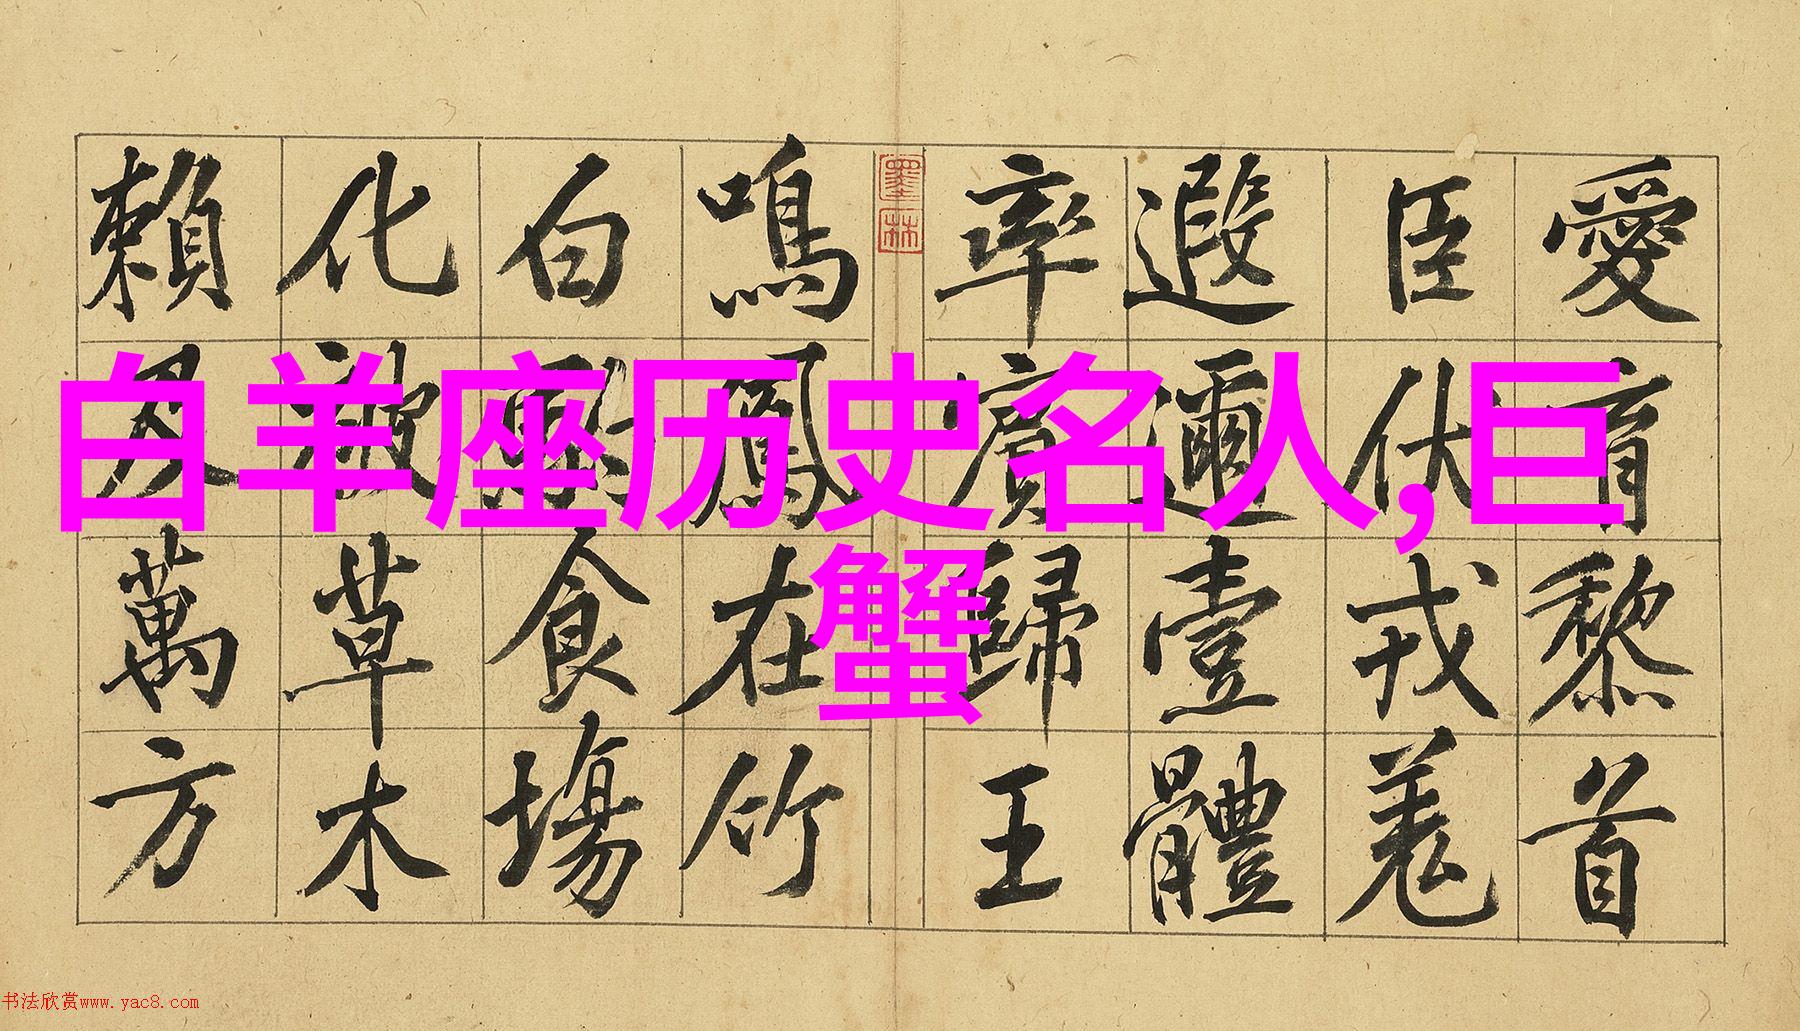 白羊座历史名人,巨
蟹
愛育黎首
臣伏戎羌
遐邇壹體
率歸王
墨林
鳴鳳在竹
白食場
化被草木
賴及萬方
书法欣赏www.yac8.com